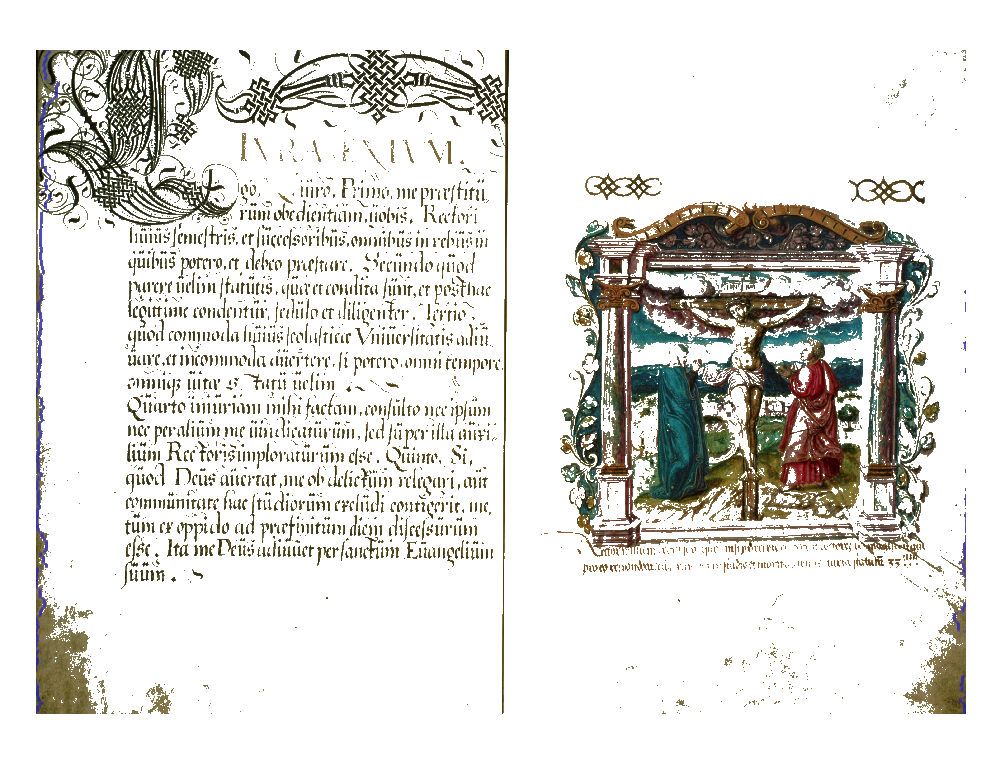 IVRAMENTVM.
Ego. iuro. Primo, me præstitu
rum obedientiam, uobis. Rectori
huius semestris, et successoribus, omnibus in rebus in
quibus potero, et debeo præstare. Secundo quod
parere uelim statutis, quæ et condita sunt, et posthac
legitime condentur, sedulo et diligenter. Tertio.
quod commoda huius scolasticæ Vniuersitatis adiu
uare, et incommoda auertere, si potero, omni tempore,
omniq; uitæ statu uelim
Quarto iniuriam mihi factam, consulto nec ipsum
nec per alium me uindicaturum, sed super illa auxi-
lium Rectoris imploraturum esse. Quinto. Si,
quod Deus auertat, me ob delictum relegari, aut
communitate hac studiorum excludi contigerit, me,
tum ex oppido ad præfinitum diem discessurum
esse. Ita me Deus adiuuet per sanctum Euangelium
suum.
statuti 33